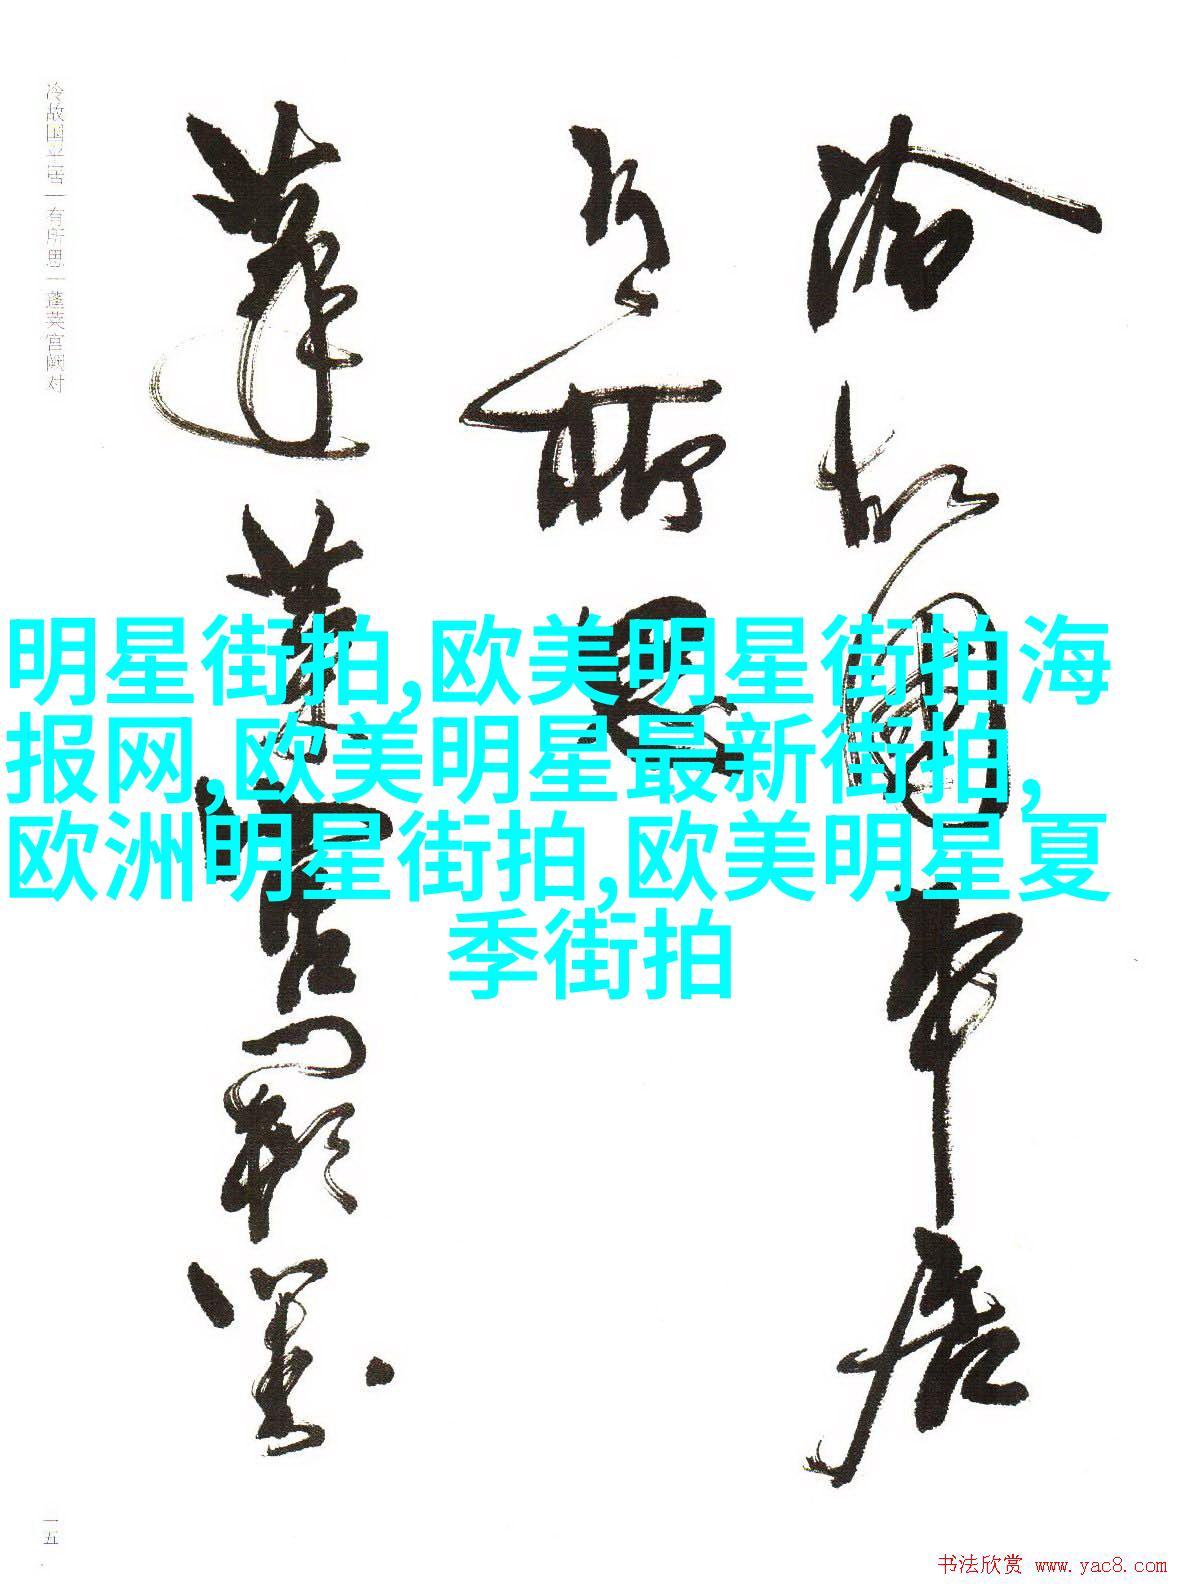 冷故国平居
有所思
蓬莱宫阙对
冷故国平居一有所思一蓬莱宫阙对
明星街拍,欧美明星街拍海
报网,欧美明星最新街拍,
欧洲明星街拍,欧美明星夏
季街拍
一五
书法欣赏 www.yac8.com